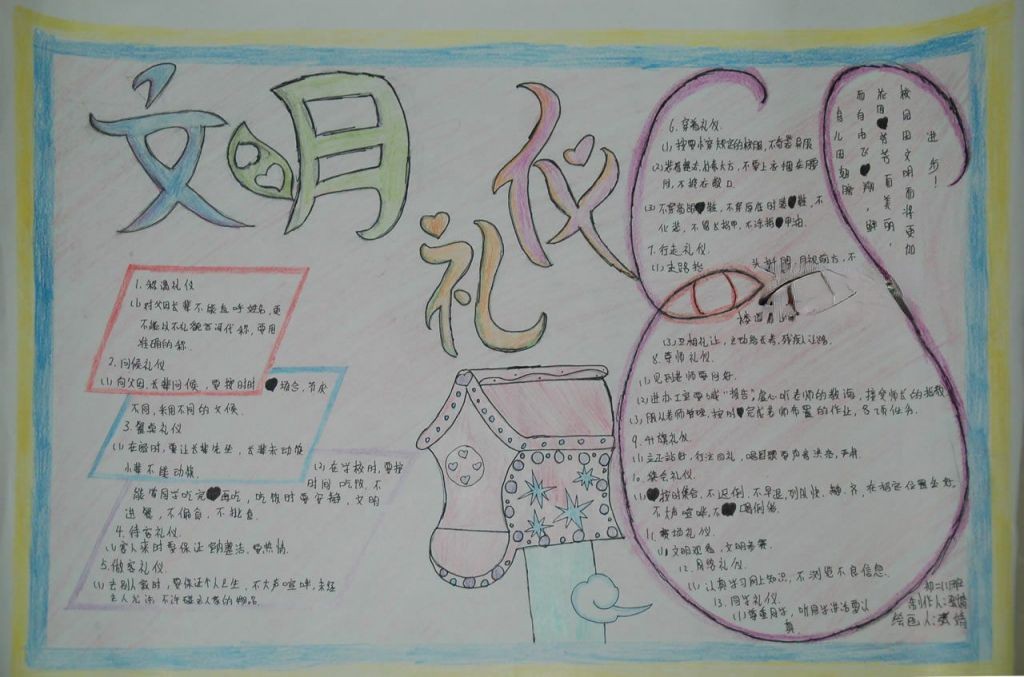 文明
礼仪
1. 称谓礼仪
(1) 对父母长辈不能直呼姓名，更
不能以不礼貌言词代称，要用
准确的称
2. 问候礼仪
(1) 向父母、长辈问候，要按时间
场合，节庆
不同，采用不同的文候.
3. 餐桌礼仪
(1) 在吃时，要让长辈先坐，长辈未动筷
小辈不能动筷.
(2) 在学校时，要按
时间吃饭.不
再吃，吃饭时要安静，文明
进餐，不偏食，不挑食.
4. 待客礼仪.
(1) 客人来时要保证整洁，要热情.
5. 做客礼仪.
(1) 去别人家时，要保证个人卫生，不大声喧哗，未经
主人允许不许碰主人家的物品
6. 穿着礼仪.
(1) 按要求穿规定的校服，不奇装异服
(2) 朴素大方，不要上衣捆在腰
间，不披衣散口.
化装，不留长指甲，不涂指甲油.
7. 行走礼仪.
(1) 走路抬头挺胸，目视前方，不
(3) 互相礼让，主动给长者、残疾人让路.
8. 尊师礼仪.
(1) 见到老师要问好.
(2) 进办公室要喊“报告”，虚心听老师的教诲，接受师长的指教
(3) 服从老师管理，按时完成老师布置的作业，各项任务.
9. 升旗礼仪.
(1) 立正站好，行注目礼，唱国歌要声音洪亮，齐
10. 集会礼仪.
(1) 按时集合，不迟到，不早退，列队快、静、齐，在指定位置坐好.
不大声喧哗，不喝倒彩.
11. 赛场礼仪.
(1) 文明观看，文明参赛.
12. 网络礼仪.
(1) 认真学习网上知识，不浏览不良信息.
13. 同学礼仪.
(1) 尊重同学，听同学讲话要认
真.
校园因文明而将更加
进步！
花因芬芳而美丽，
而自由飞翔，
鸟儿因翅膀
绘画人：